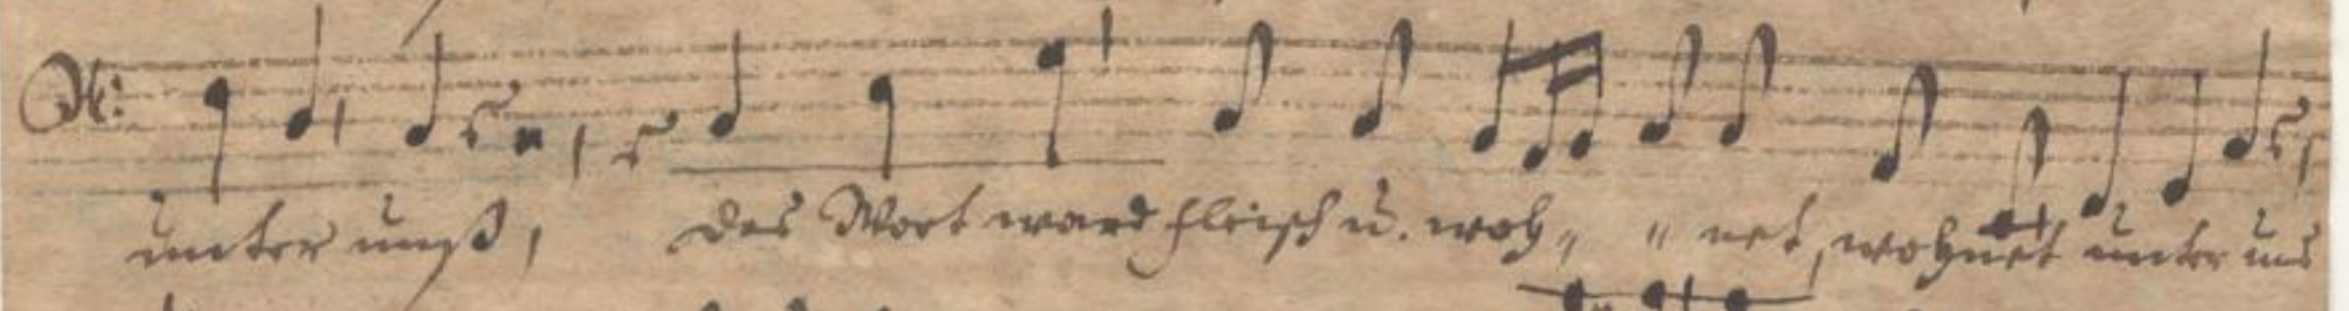 unter unß, das Wort ward fleisch u. woh,, " net, wohnet unter uns